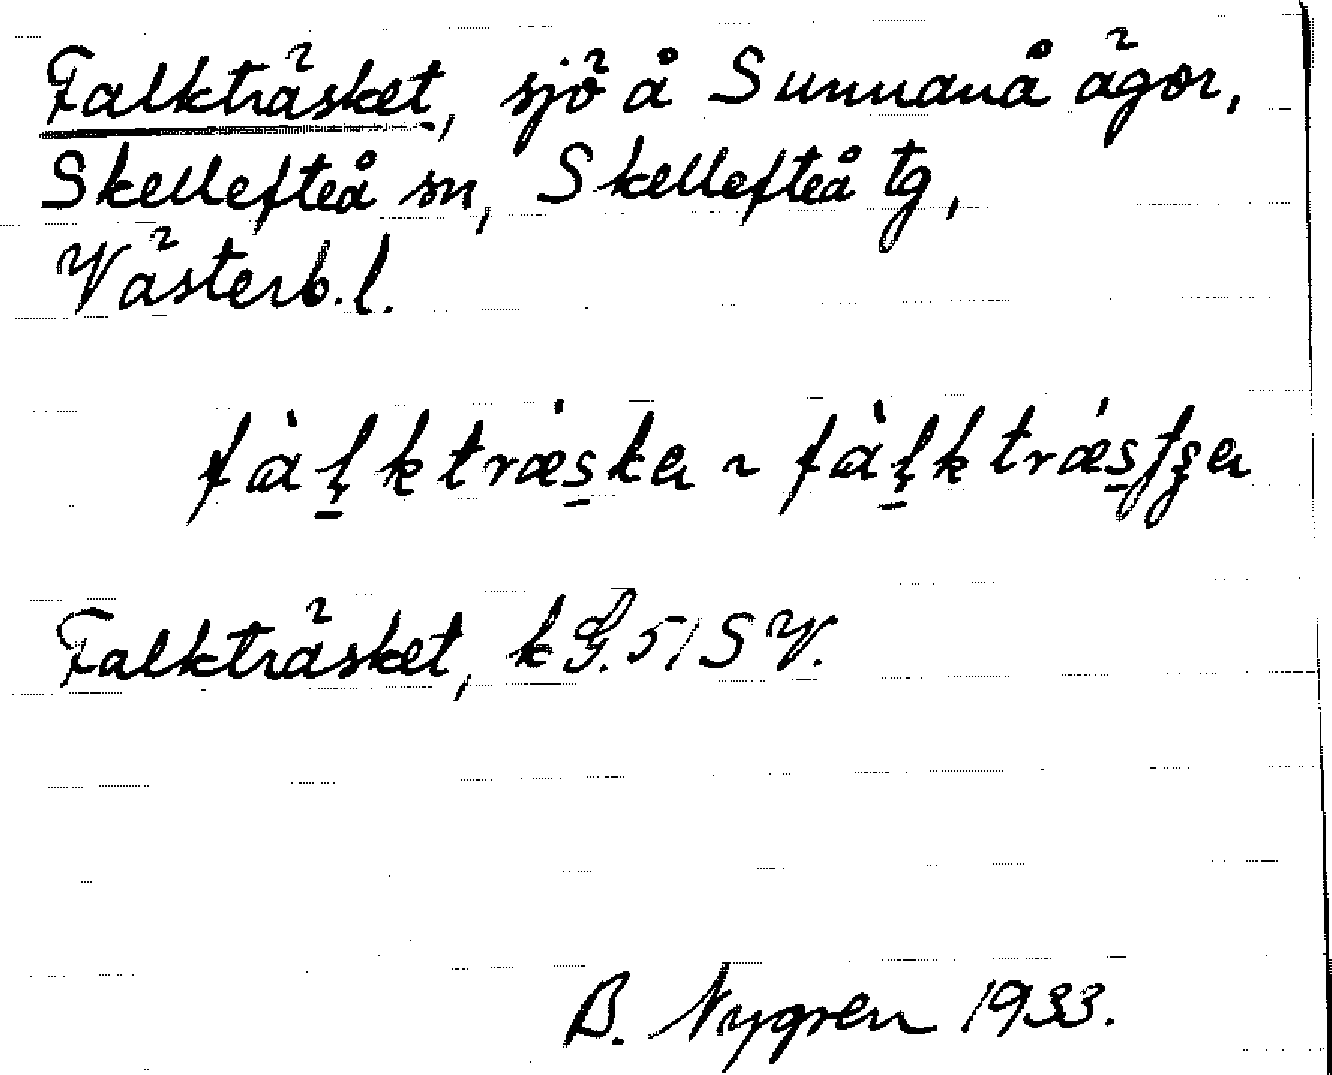 Falkträsket, sjö å Sunnanå ägor,
Skellefteå sn, Skellefteå tg,
Västerb. l.
Falkträsket, kG. 51 SV.
B. Nygren 1933.